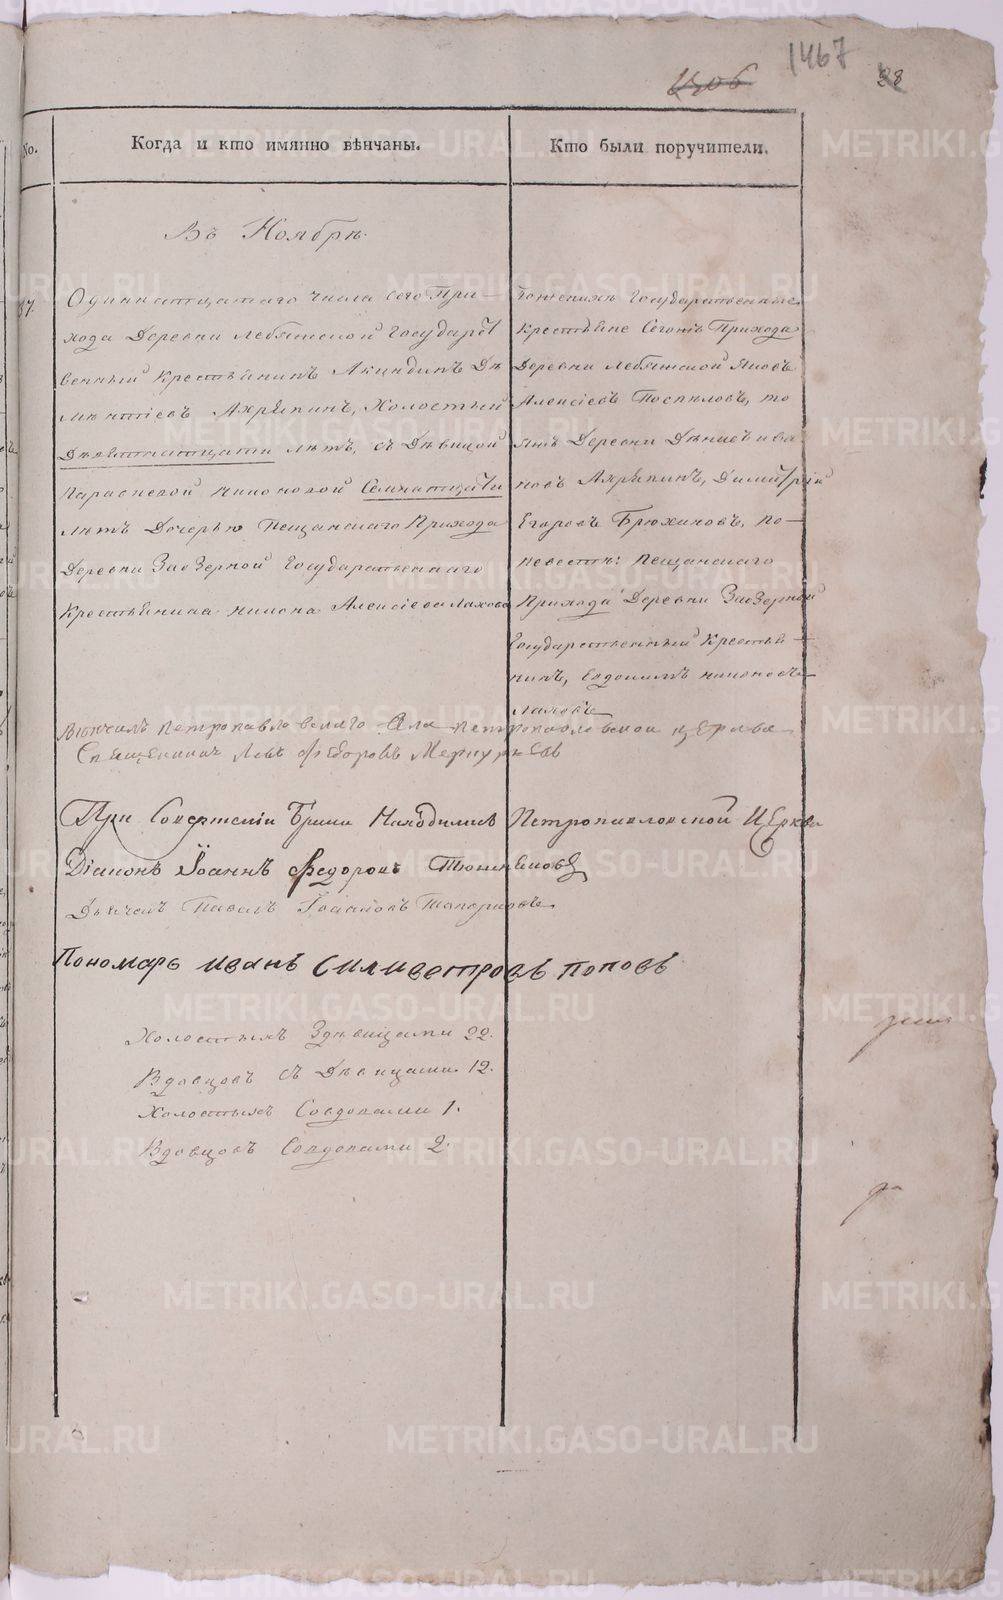 1467
1306
38
No.
Когда и кто имянно вѣнчаны.
Кто были поручители.
Въ Ноябрѣ.
37.
Одиннатцатаго числа сего При-
хода Деревни Лебяжской Государст
венный Крестьянинъ Акиндинъ Де
ментіевъ Ахряпинъ, Холостый
Девятнатцати лѣтъ, съ Дѣвицой
Параскевой Никоновой Семнатцати
лѣтъ Дочерью Пещанскаго Прихода
Деревни Заозерной Государственнаго
Крестьянина Никона Алексіева Лахова
Государственные
Крестьяне Сегожъ Прихода
Деревни Лебяжской Яковъ
Алексіевъ Поспеловъ, то
яжъ Деревни Ива
новъ Ахряпинъ, Димитрій
Егоровъ Брюхановъ, По
невестѣ: Пещанскаго
Прихода Деревни Заозерной
Государственный Крестья
нинъ, Евдокимъ Никоновъ
Лаховъ
Вѣнчалъ Петропавловскаго Села Петропавловской церкви
Священникъ Левъ Федоровъ Меркурьевъ
При Совершеніи Брака Находились Петропавловской Церкви
Діаконъ Іоаннъ Федоровъ
Дьячекъ Павелъ Іоанновъ Топорковъ
Пономарь Иванъ Силивестровъ Поповъ
Холостыхъ Здѣвицами 22.
Вдовцовъ съ Дѣвицами 12.
Холостыхъ Совдовами 1.
Вдовцовъ Совдовами 2.
METRIKI.GASO-URAL.RU